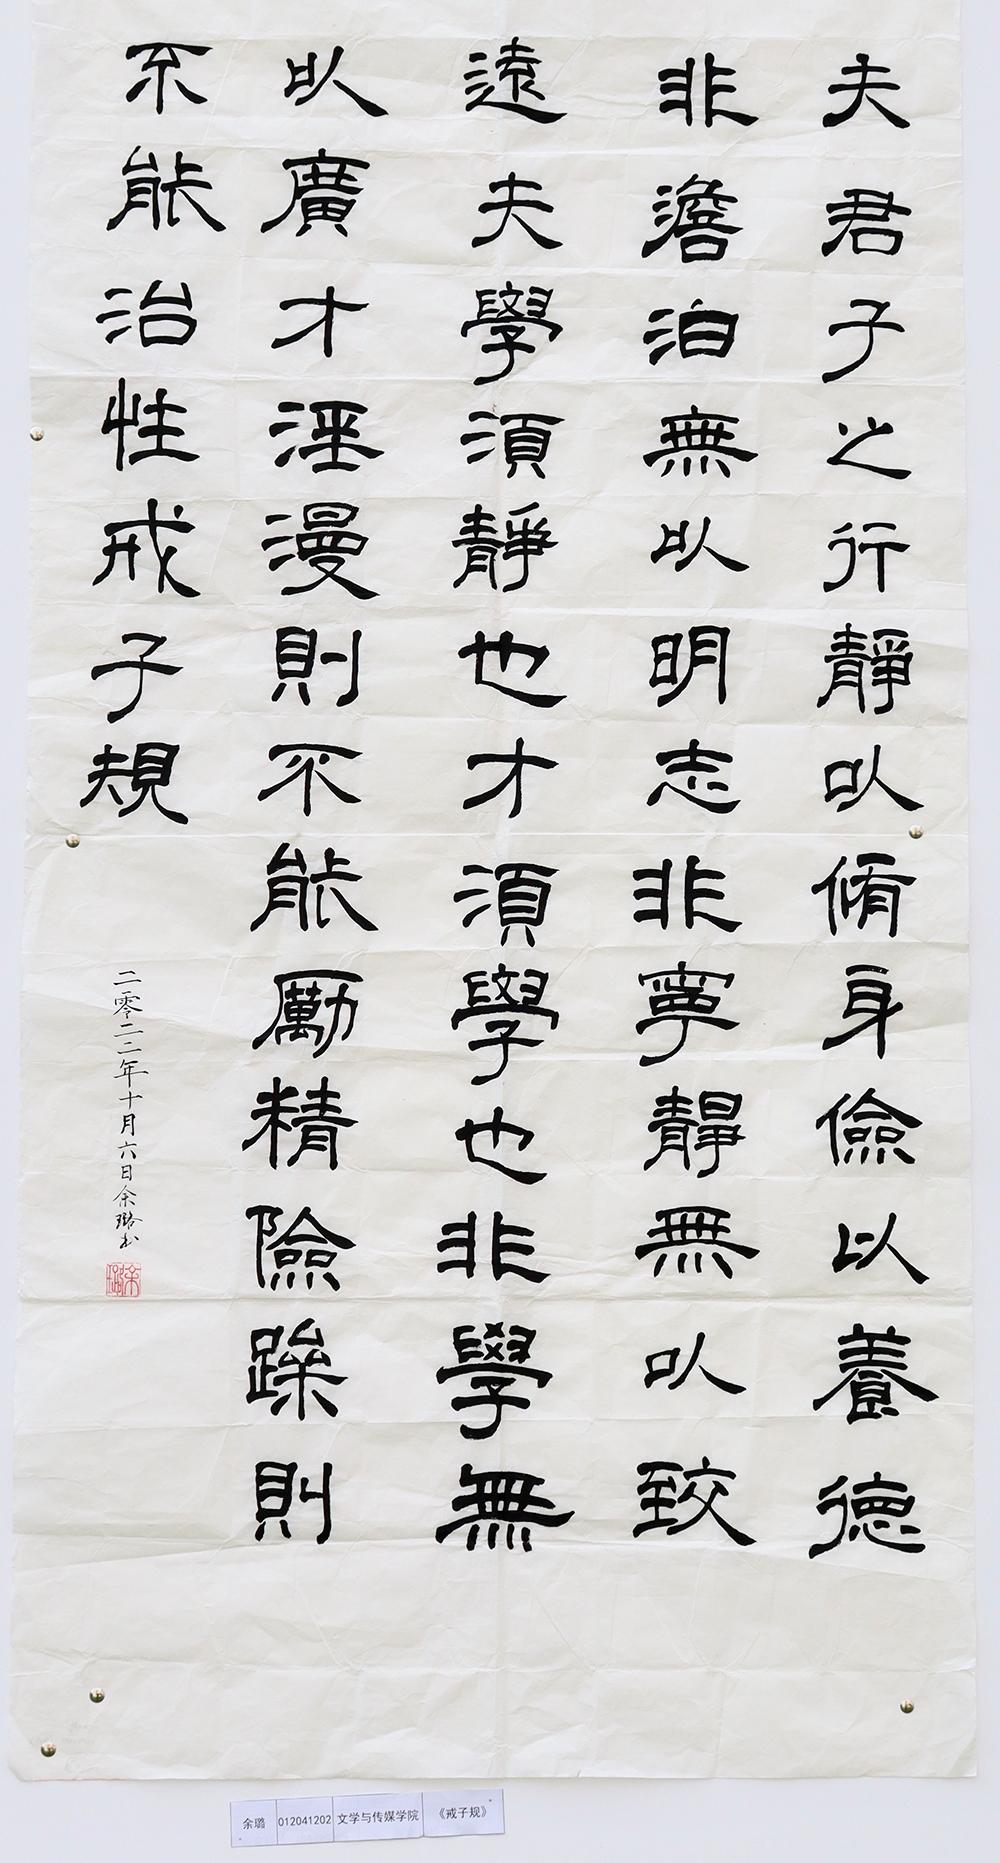 夫君子之行靜以脩身儉以養德
非澹泊無以明志非寧靜無以致
遠夫學須靜也才須學也非學無
以廣才淫漫則不能勵精險躁則
不能治性戒子規
二零二二年十月六日余璐书
余璐
余璐 012041202 文学与传媒学院 《戒子规》